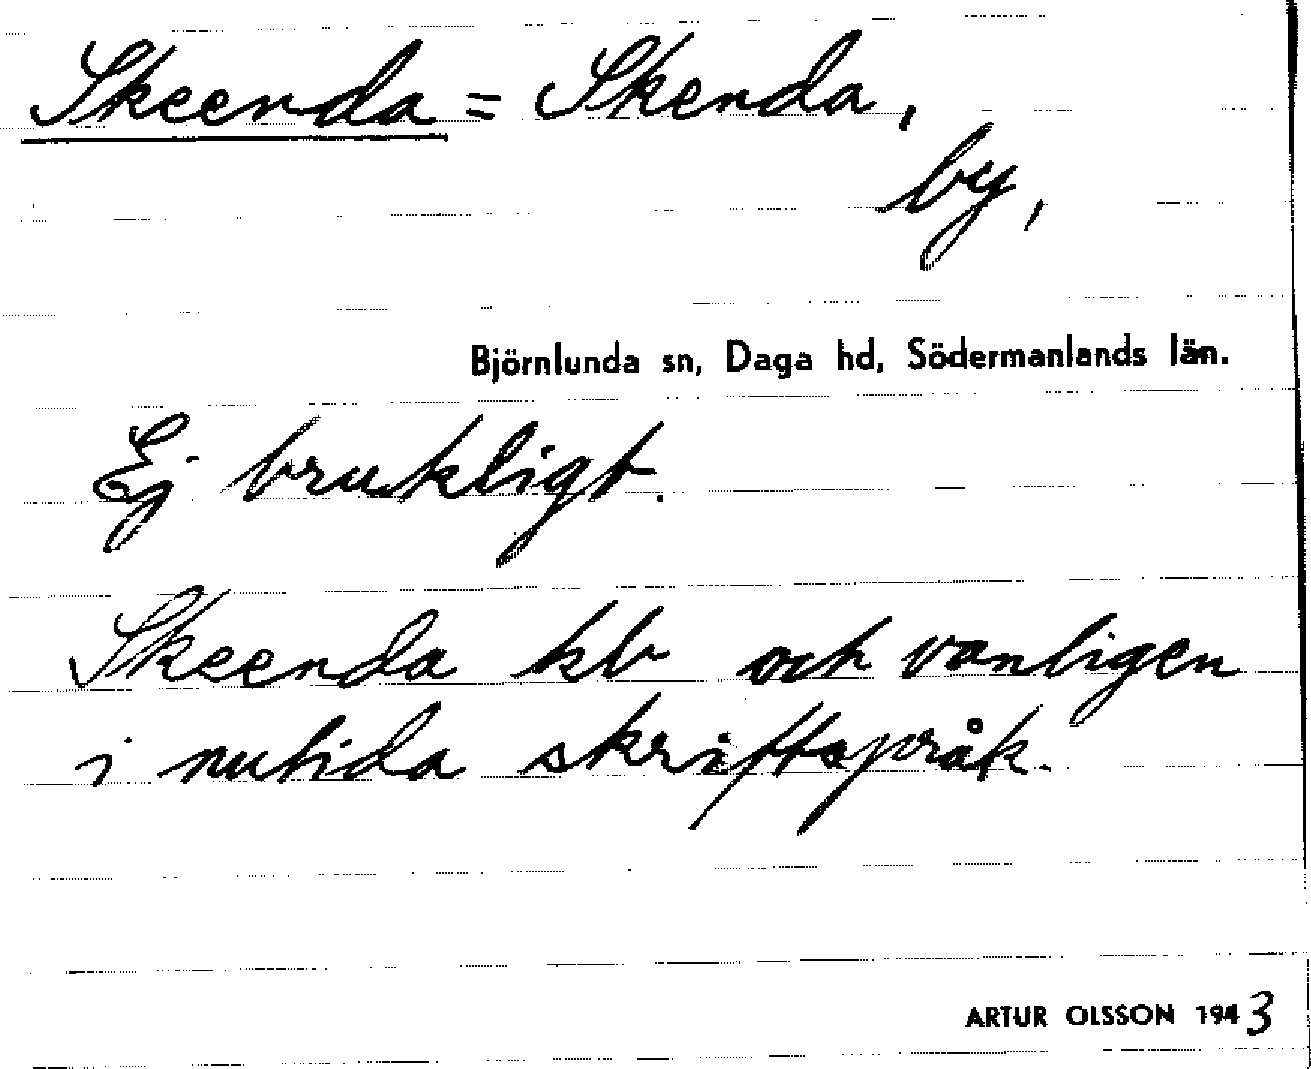 Skeenda = Skenda,
by,
Björnlunda sn, Daga hd, Södermanlands län.
Ej brukligt.
Skeenda kb och vanligen
i nutida skriftspråk.
ARTUR OLSSON 1943